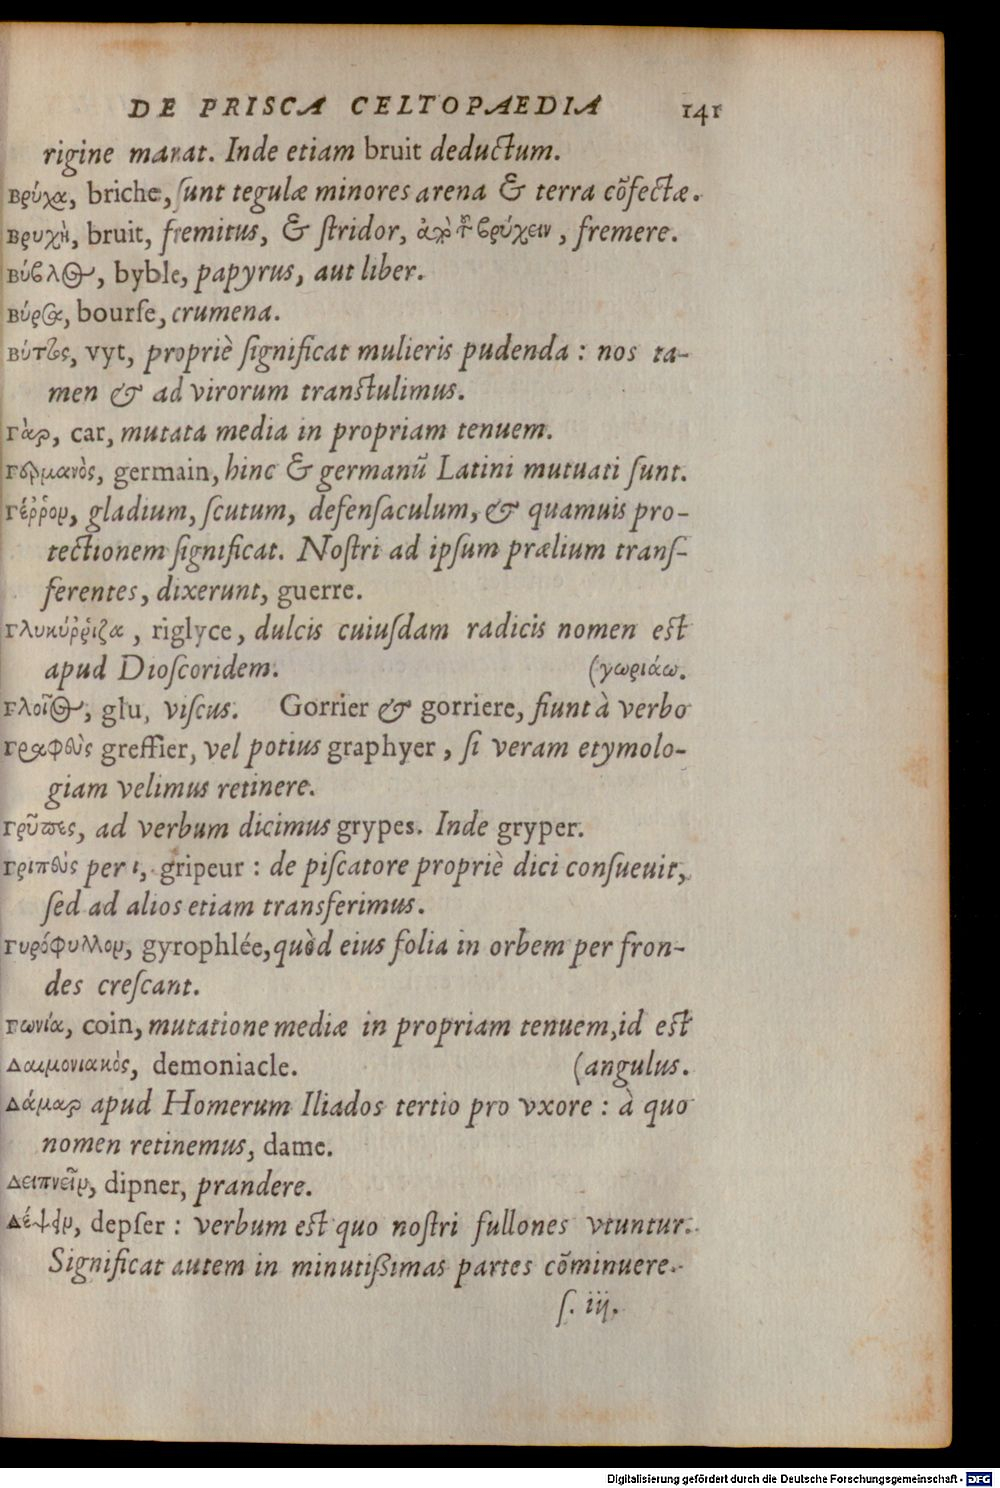 DE PRISCA CELTOPAEDIA 141
rigine manat. Inde etiam bruit deductum.
Βρύχα, briche, ſunt tegulæ minores arena & terra cõfectæ.
Βρυχὴ, bruit, fremitus, & ſtridor, ἀπὸ τοῦ βρύχειν, fremere.
Βύβλος, byble, papyrus, aut liber.
Βύρσα, bourſe, crumena.
Βύττος, vyt, propriè ſignificat mulieris pudenda : nos ta-
men & ad virorum tranſtulimus.
Γὰρ, car, mutata media in propriam tenuem.
Γερμανὸς, germain, hinc & germanũ Latini mutuati ſunt.
Γέῤῥον, gladium, ſcutum, defenſaculum, & quamuis pro-
tectionem ſignificat. Noſtri ad ipſum prælium tranſ-
ferentes, dixerunt, guerre.
Γλυκύῤῥιζα, riglyce, dulcis cuiuſdam radicis nomen eſt
apud Dioſcoridem. (γωριάω.
Γλοῖος, glu, viſcus. Gorrier & gorriere, fiunt à verbo
Γραφεὺς greffier, vel potius graphyer, ſi veram etymolo-
giam velimus retinere.
Γρῦπες, ad verbum dicimus grypes. Inde gryper.
Γριπεὺς per ι, gripeur : de piſcatore propriè dici conſueuit,
ſed ad alios etiam transferimus.
Γυρόφυλλον, gyrophlée, quòd eius folia in orbem per fron-
des creſcant.
Γωνία, coin, mutatione mediæ in propriam tenuem, id eſt
Δαιμονιακὸς, demoniacle. (angulus.
Δάμαρ apud Homerum Iliados tertio pro vxore : à quo
nomen retinemus, dame.
Δειπνεῖν, dipner, prandere.
Δέψειν, depſer : verbum eſt quo noſtri fullones vtuntur.
Significat autem in minutißimas partes cõminuere.
ſ. iij.
Digitalisierung gefördert durch die Deutsche Forschungsgemeinschaft - DFG